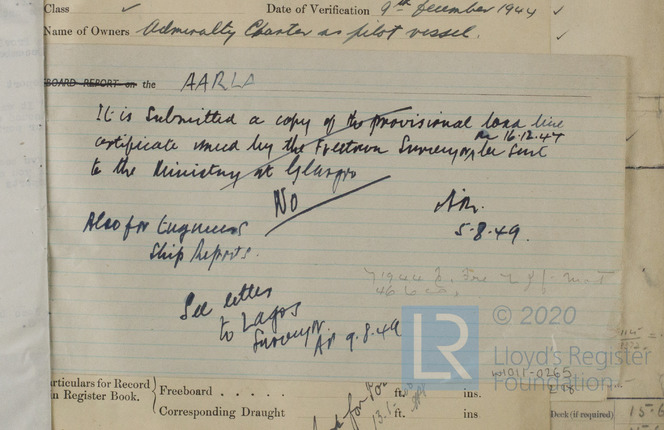 Class ✓ Date of Verification 9th December 1944 ✓
Name of Owners Admiralty Charter as pilot vessel. ✓
BOARD REPORT on the AARLA
It is submitted a copy of the provisional load line
certificate issued by the Freetown Surveyor, be sent
16.12.47
to the Ministry at Glasgow
No
5.8.49.
Also for Engineers
Ship Reports.
See letter
to Lagos
Surveyor. 9.8.49
© 2020
LR
Lloyd's Register
Foundation
W1011-0265
articulars for Record
in Register Book.
Freeboard . . . . . ft. ins.
Corresponding Draught ft. ins
13.5
Deck (if required) 15.6